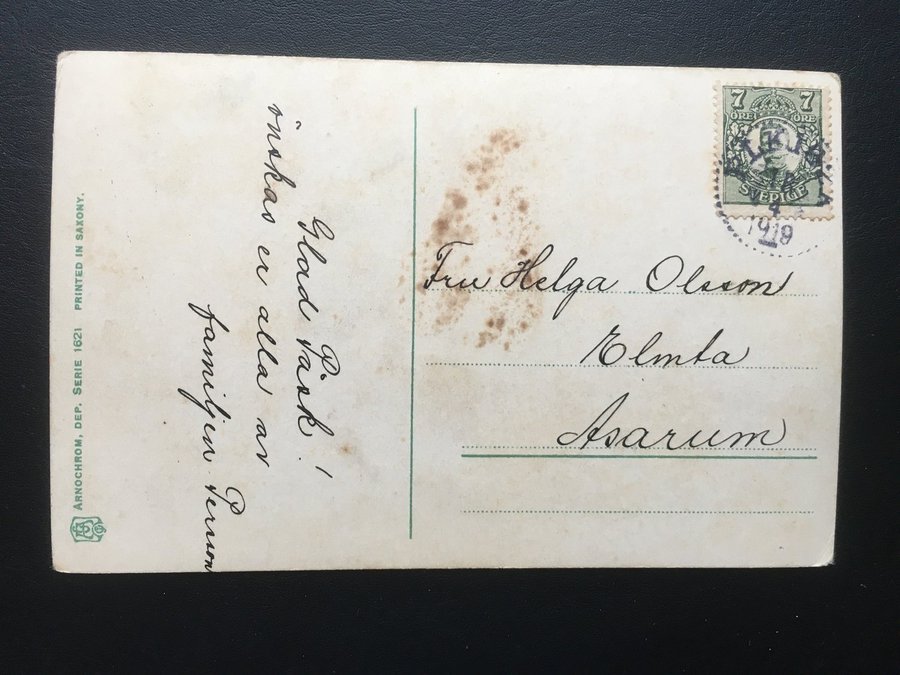 Glad Påsk!
önskas er alla av
familjen Persson
Fru Helga Olsson
Elmta
Asarum
7 7
ÖRE ÖRE
SVERIGE
14
4
1919
ARNOCHROM, DEP. SERIE 1621 PRINTED IN SAXONY.